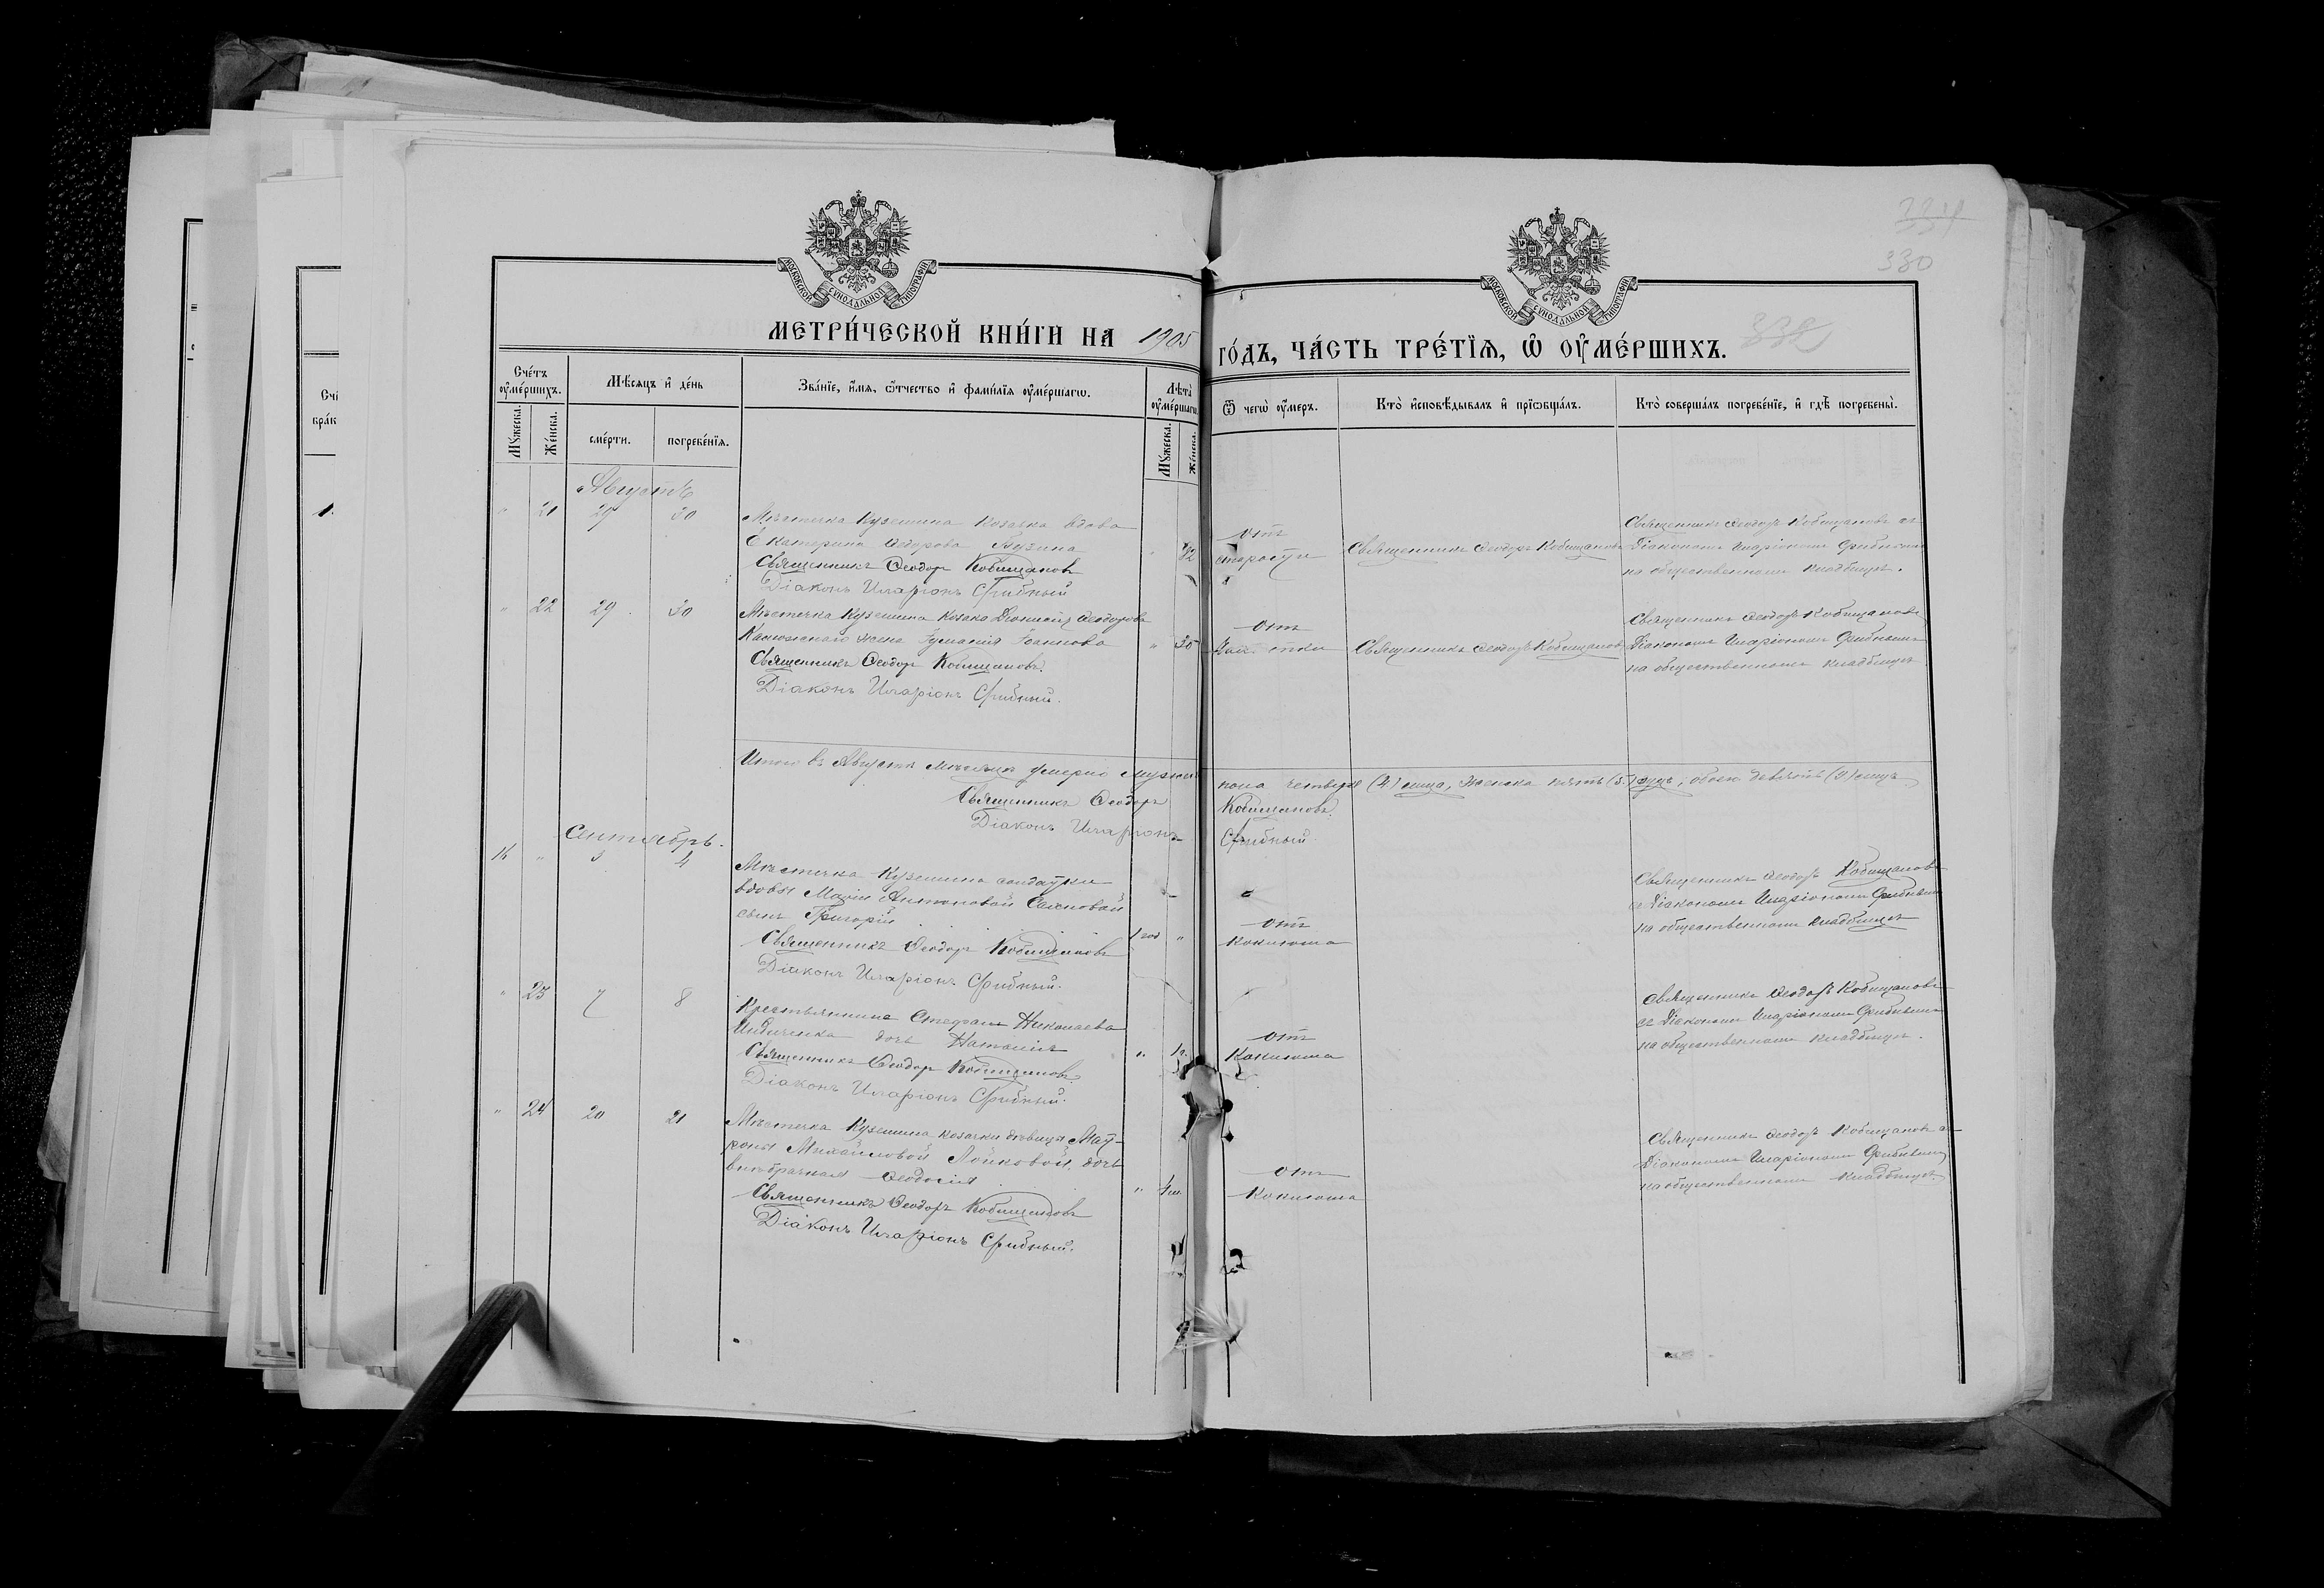 334
330
332
МОСКОВСКОЙ СУНОДАЛЬНОЙ ТИПОГРАФІИ
МОСКОВСКОЙ СУНОДАЛЬНОЙ ТИПОГРАФІИ
МЕТРИ́ЧЕСКОЙ КНИ́ГИ НА 1905 ГО́ДЪ, ЧА́СТЬ ТРЕ́ТЇѦ, Ѡ҆ ОУ҆МЕ́РШИХЪ.
Сче́тъ оу҆ме́ршихъ.
Мꙋ́жеска.
Же́нска.
Мѣ́сѧцъ и҆ де́нь
сме́рти.
погребе́нїѧ.
Зва́нїе, и҆́мѧ, ѻ҆́тчество и҆ фами́лїѧ оу҆ме́ршагѡ.
Лѣ́та оу҆ме́ршагѡ.
Мꙋ́жеска.
Же́нска.
Ѿ чегѡ̀ оу҆́меръ.
Кто̀ и҆сповѣ́дывалъ и҆ прїѡбща́лъ.
Кто̀ соверша́лъ погребе́нїе, и҆ гдѣ̀ погребены̀.
Августъ
" 21 29 30
Мѣстечка Куземина козачка вдова
Екатерина Ѳедорова Бузина
Священникъ Ѳеодоръ Кобищановъ
Діаконъ Иларіонъ Срибный
" 92
отъ
старости
Священникъ Ѳеодоръ Кобищановъ
Священникъ Ѳеодоръ Кобищановъ съ
Діакономъ Иларіономъ Срибнымъ
на общественномъ кладбищѣ.
" 22 29 30
Мѣстечка Куземина козака Діонисія Ѳеодорова
жена Іоаннова
Священникъ Ѳеодоръ Кобищановъ.
Діаконъ Иларіонъ Срибный.
" 35
Отъ
Священникъ Ѳеодоръ Кобищановъ
Священникъ Ѳеодоръ Кобищановъ
Діакономъ Иларіономъ Срибнымъ
на общественномъ кладбищѣ
Итого въ Августѣ мѣсяцѣ умерло мужескаго пола четверо (4) лица, женска пять (5) лицъ, обоего девять (9) лицъ
Священникъ Ѳеодоръ Кобищановъ.
Діаконъ Иларіонъ Срибный.
Сентябрь.
16 " 3 4
Мѣстечка Куземина солдатки
вдовы Маріи Антоновой
сынъ Григорій
Священникъ Ѳеодоръ Кобищановъ
Діаконъ Иларіонъ Срибный.
1 год "
отъ
коклюша
Священникъ Ѳеодоръ Кобищановъ
съ Діакономъ Иларіономъ Срибнымъ
на общественномъ кладбищѣ
" 23 7 8
Крестьянина Стефана Николаева
дочь Наталія
Священникъ Ѳеодоръ Кобищановъ.
Діаконъ Иларіонъ Срибный.
отъ
Коклюша
Священникъ Ѳеодоръ Кобищановъ
съ Діакономъ Иларіономъ Срибнымъ
на общественномъ кладбищѣ.
" 24 20 21
Мѣстечка Куземина козачки дѣвицы Мат-
роны Михайловой Лойковой, дочь
внѣбрачная Ѳеодосія
Священникъ Ѳеодоръ Кобищановъ
Діаконъ Иларіонъ Срибный.
отъ
Коклюша
Священникъ Ѳеодоръ Кобищановъ съ
Діакономъ Иларіономъ Срибнымъ
на общественномъ кладбищѣ.